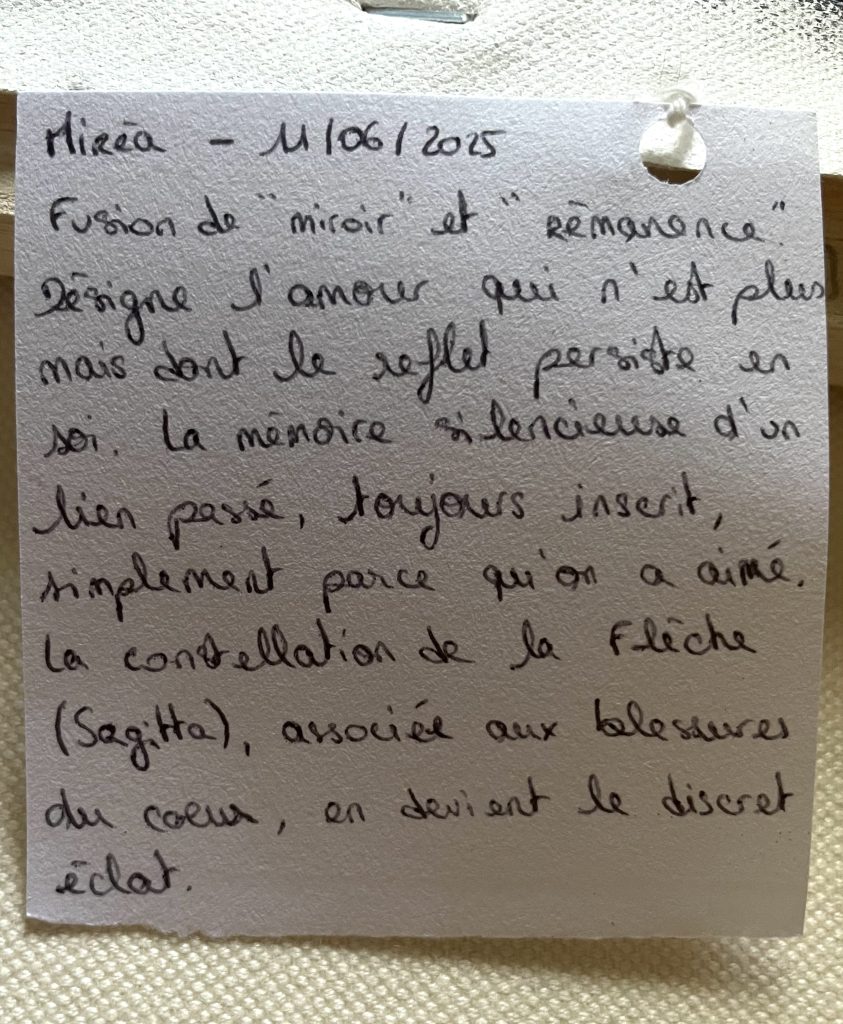 Miréa - 11/06/2025
Fusion de "miroir" et "rémanence".
Désigne l'amour qui n'est plus
mais dont le reflet persiste en
soi. La mémoire silencieuse d'un
lien passé, toujours inscrit,
simplement parce qu'on a aimé.
La constellation de la Flèche
(Sagitta), associée aux blessures
du coeur, en devient le discret
éclat.